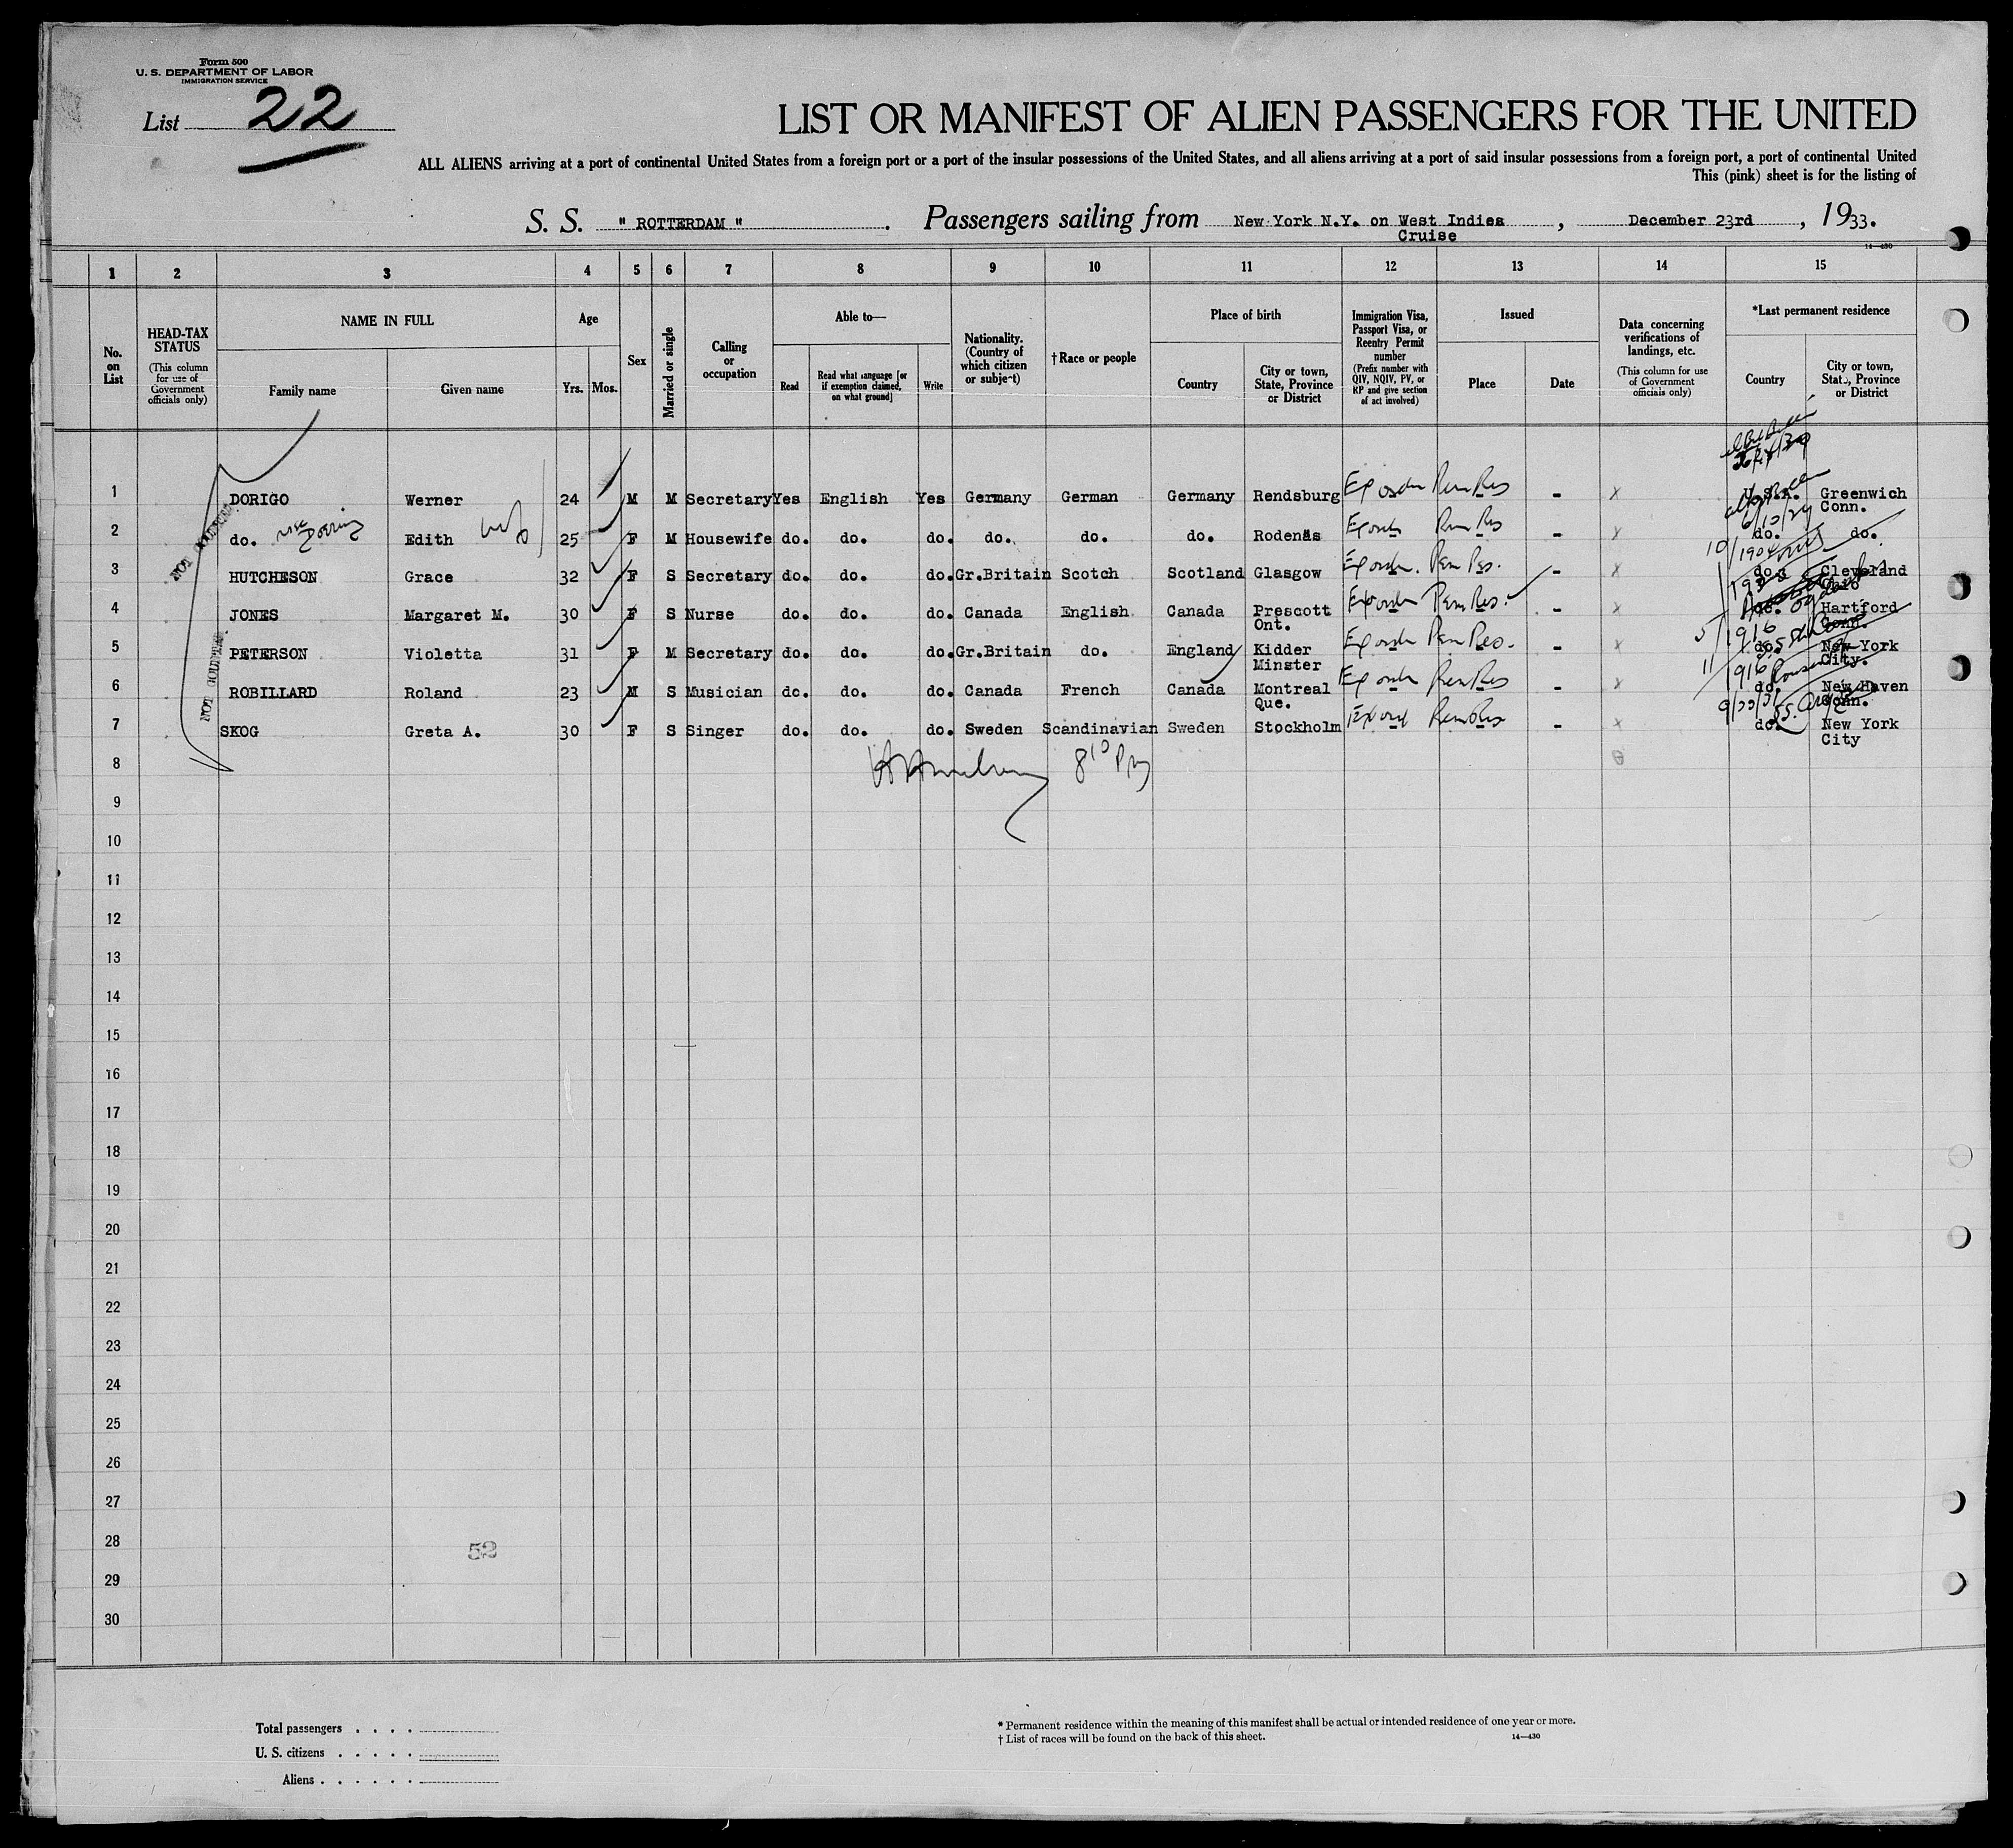 Form 500
U. S. DEPARTMENT OF LABOR
IMMIGRATION SERVICE
List 22
LIST OR MANIFEST OF ALIEN PASSENGERS FOR THE UNITED
ALL ALIENS arriving at a port of continental United States from a foreign port or a port of the insular possessions of the United States, and all aliens arriving at a port of said insular possessions from a foreign port, a port of continental United
This (pink) sheet is for the listing of
S. S. " ROTTERDAM " . Passengers sailing from New York N.Y. on West Indies , December 23rd , 1933.
Cruise
14—430
1 2 3 4 5 6 7 8 9 10 11 12 13 14 15
No. on List
HEAD-TAX STATUS
(This column for use of Government officials only)
NAME IN FULL
Family name
Given name
Age
Yrs.
Mos.
Sex
Married or single
Calling or occupation
Able to—
Read
Read what language [or if exemption claimed, on what ground]
Write
Nationality. (Country of which citizen or subject)
† Race or people
Place of birth
Country
City or town, State, Province or District
Immigration Visa, Passport Visa, or Reentry Permit number
(Prefix number with QIV, NQIV, PV, or RP and give section of act involved)
Issued
Place
Date
Data concerning verifications of landings, etc.
(This column for use of Government officials only)
*Last permanent residence
Country
City or town, State, Province or District
1 DORIGO Werner 24 M M Secretary Yes English Yes Germany German Germany Rendsburg Perm Res - x U.S.A. Greenwich
Conn.
2 do. Edith 25 F M Housewife do. do. do. do. do. do. Rodenäs Perm Res - x do. do.
3 HUTCHESON Grace 32 F S Secretary do. do. do. Gr.Britain Scotch Scotland Glasgow Perm Res. - x do. Cleveland
Ohio
4 JONES Margaret M. 30 F S Nurse do. do. do. Canada English Canada Prescott Perm Res. - x do. Hartford
Ont. Conn.
5 PETERSON Violetta 31 F M Secretary do. do. do. Gr.Britain do. England Kidder Perm Res. - x do. New York
Minster City.
6 ROBILLARD Roland 23 M S Musician do. do. do. Canada French Canada Montreal Perm Res - x do. New Haven
Que. Conn.
7 SKOG Greta A. 30 F S Singer do. do. do. Sweden Scandinavian Sweden Stockholm Perm Res - x do. New York
City
8 8 10 Pm
9
10
11
12
13
14
15
16
17
18
19
20
21
22
23
24
25
26
27
28
29
30
52
Total passengers . . . .
U. S. citizens . . . . .
Aliens . . . . . .
* Permanent residence within the meaning of this manifest shall be actual or intended residence of one year or more.
† List of races will be found on the back of this sheet. 14—430